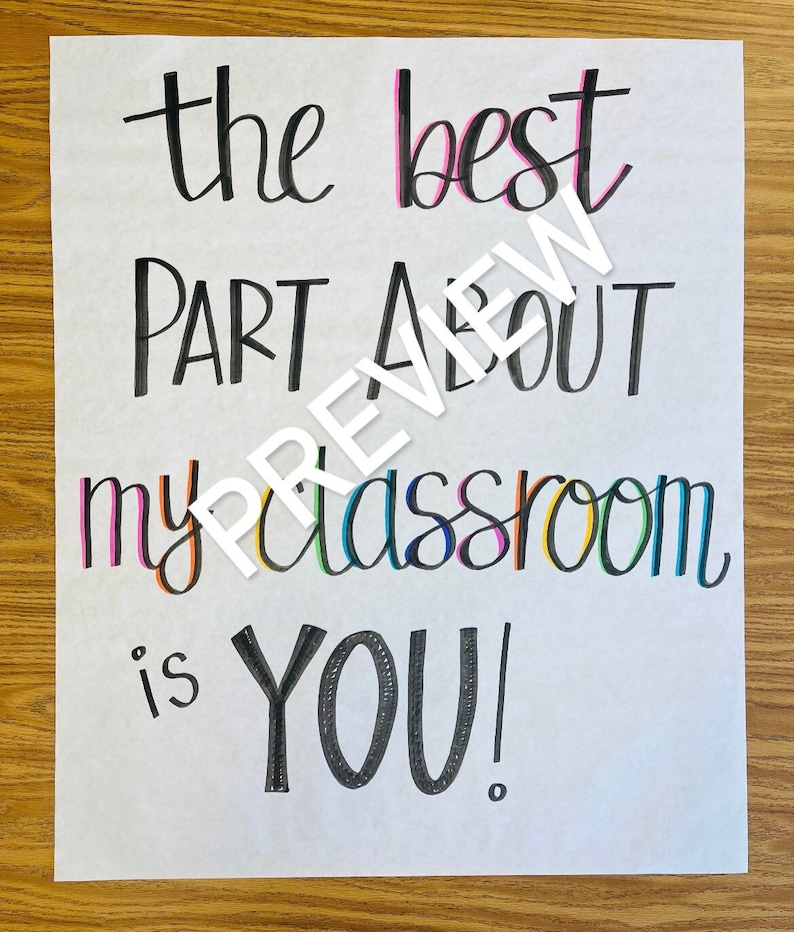 the best
PART ABOUT
my classroom
is YOU!
PREVIEW